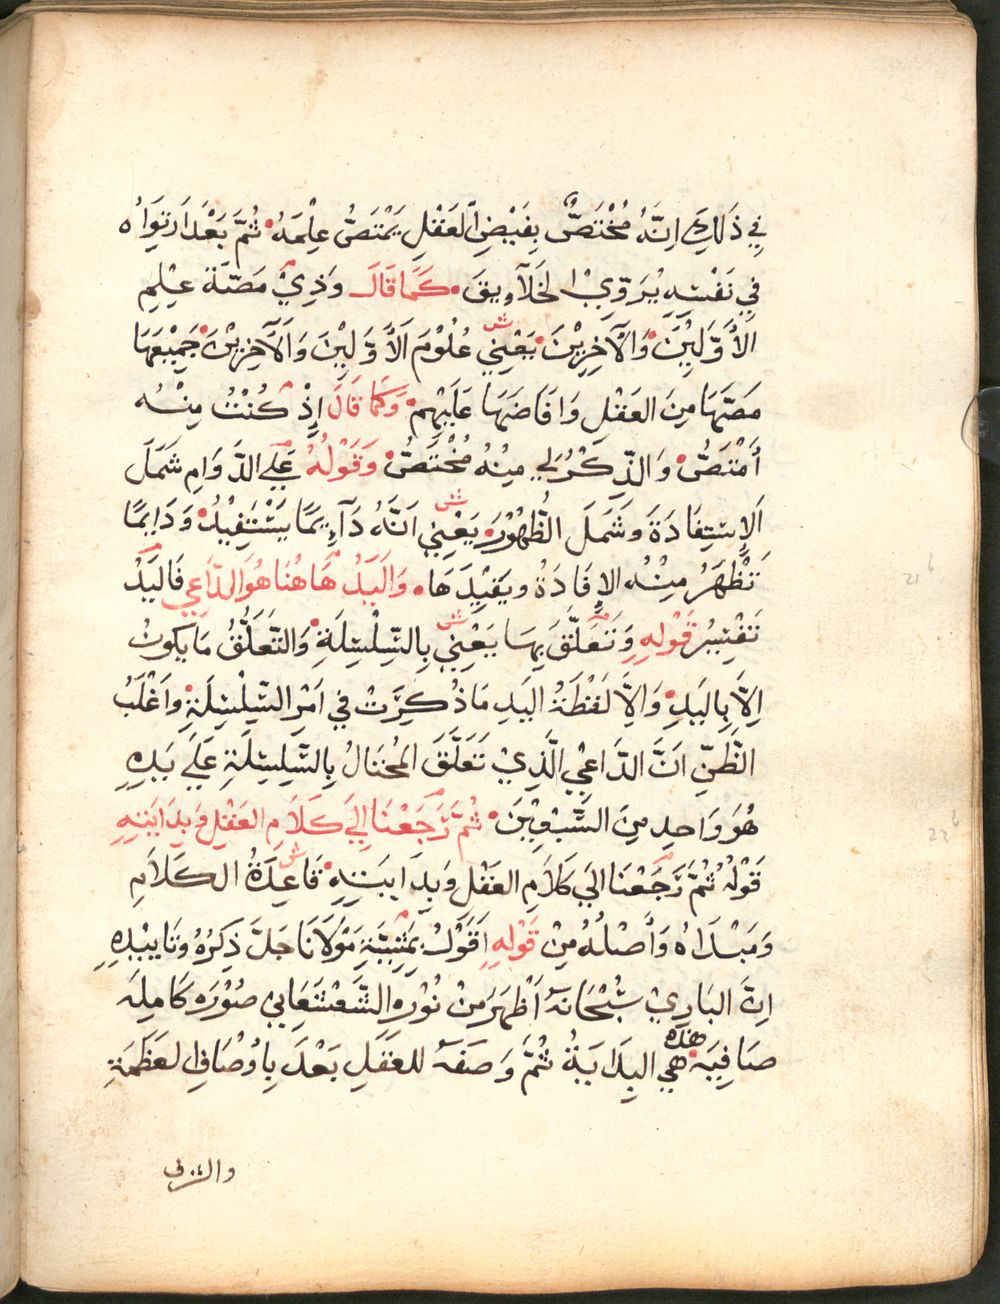 في ذَلِكَ اِنَّهُ مُخْتَصٌّ بِفَيْضِ العَقْلِ يَمْتَصُّ عِلْمَهُ ثُمَّ بَعْدَ ارتِوَاُه
في نَفْسِهِ يُرَوِّيْ الخَلَآيِقَ كَمَا قَالَ وَذِيْ مَصَّةُ عِلْمِ
الاَوَّلِيْنَ وَالآخِرِيْنَ يَعْنِي ش عُلُوْمَ اَلاَوَّلِيْنَ وَالآخِرِيْنَ جَمِيْعَهَا
مَصَّهَا مِنَ العَقْلِ وَافَاضَهَا عَلَيْهِمْ وَكَمَا قَالَ إِذْ كُنْتُ مِنْهُ
أَمْتَصُّ وَالذِّكْرُ لِي مِنْهُ مُخْتَصُّ وَقَوْلُهُ عَلَى الدَّوَامِ شَمَلَ
اَلإِسْتِفَادَةَ وَشَمَلَ الظُّهُوْرَ يَعْنِي ش اَنَّهُ دَآيِمًا يَسْتَفِيْدُ وَدَايمًا
تَظْهَرُ مِنْهُ الإِفَادَةُ ويَفِيْدَهَا وَاليَدُ هَاهُنَا هُوَ الدَّاعِي فَاليَدُ
تَفْسِيْرُ قَوْلِهِ وَتَعَلَّقَ بِهَا يَعْنِي ش بِالسِّلْسِلَةِ وَالتَّعَلُّقُ مَا يَكونُ
اِلاَّ بِاليَدِ وَاِلاَّ لَفْظَةُ اليَدِ مَا ذُكِرَتْ في اَمْرِ السِّلْسِلَةِ وَاَغْلَبُ
الظَّنِّ اَنَّ الدَّاعِي الَّذِيْ تَعَلَّقَ المُحْتَالُ بِالسِّلْسِلَةِ عَلَى يَدِهِ
هُوَ وَاحِد مِنَ السَّبْعِيْنَ ثُمَّ رَجَعْنَا اِلَى كَلَامِ العَقْلِ وَبِدَايَتِهِ
قَوْلُهُ ثُمَّ رَجَعْنَا الى كَلاَمِ العَقْلِ وَبِدَايَتِهِ ش قَاعِدَةُ الكَلَامِ
وَمَبْدَاهُ وَأَصْلُهُ مِنْ قَوْلِهِ اَقَوْلُ بِمَشِيَّةِ مَوْلَانَا جَلَّ ذِكْرُهُ وَتَايِيْدِهِ
اِنَّ البَارِيْ سُبْحَانَهُ أَظْهَرَ مِنْ نُوْرِهِ الشَّعْشَعَانِي صُوْرَه كَامِلَه
صَافِيَه هذه هِي البِدَايَةُ ثُمَّ وَصَفَهُ للعَقَلِ بَعْدَ بِاُوْصَافِ العَظَمَةِ
21 b
22 b